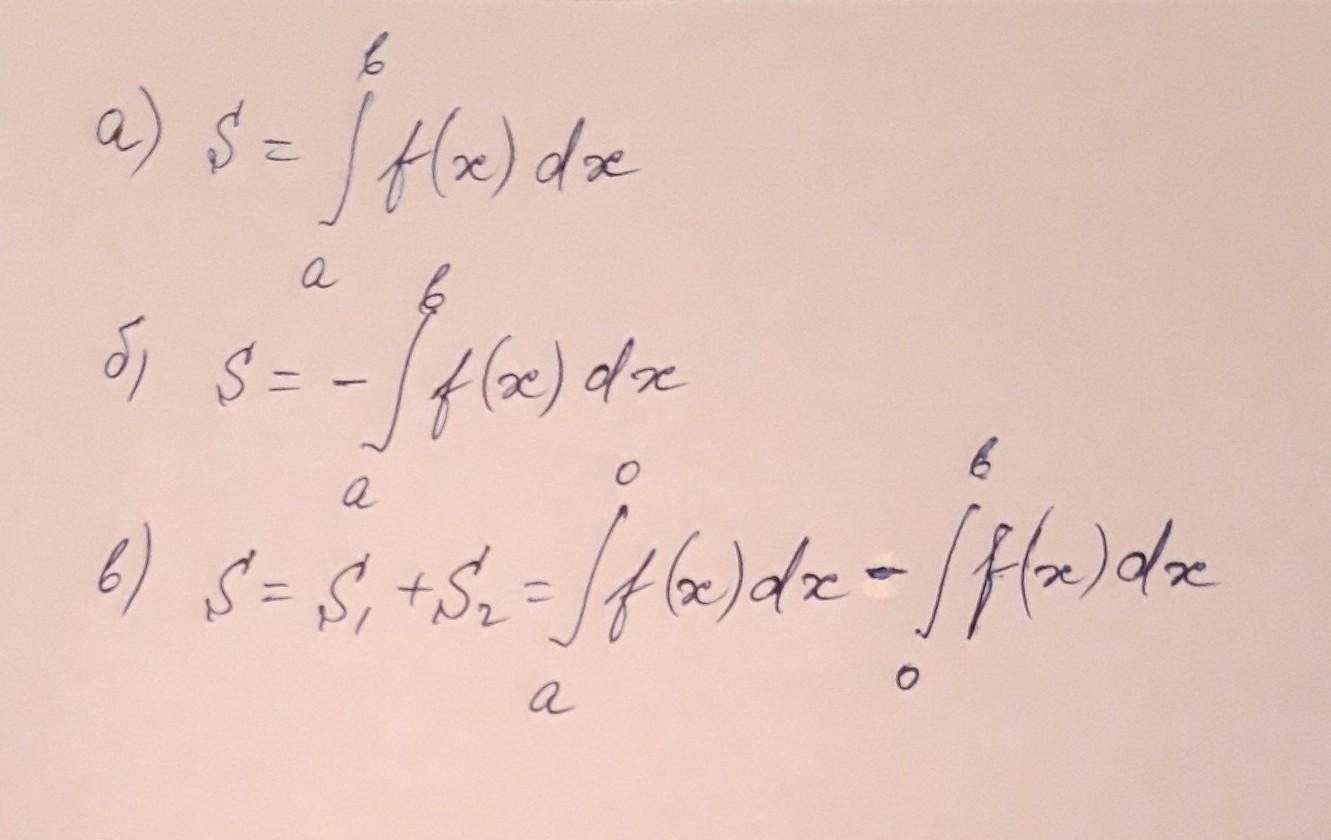 а) S = ∫ₐᵇ f(x) dx
б) S = - ∫ₐᵇ f(x) dx
в) S = S₁ + S₂ = ∫ₐ⁰ f(x) dx - ∫₀ᵇ f(x) dx